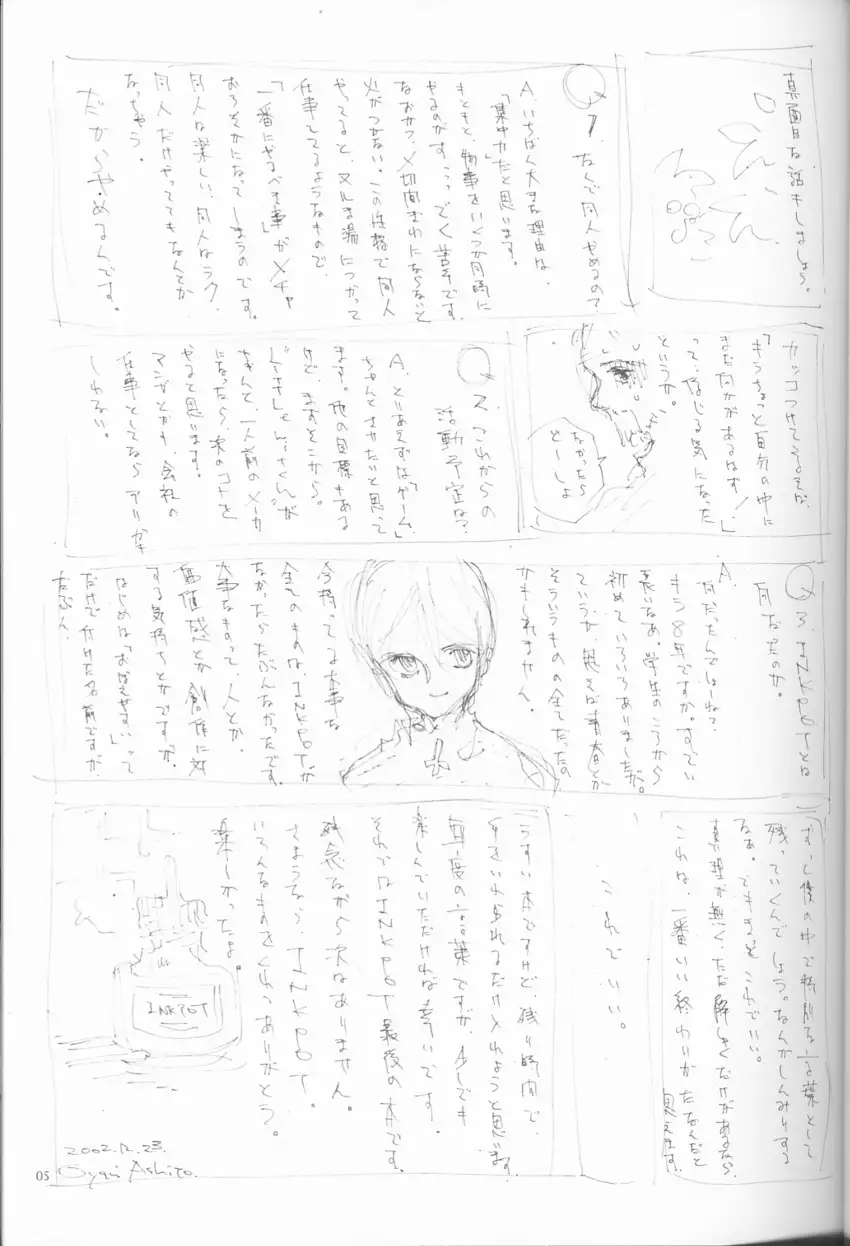 真面目な話をしましょう。
Q1、なんで同人やめるの?
A、いちばん大きな理由は、
「集中力」だと思います。
もともと、物事をいくつか同時に
やるのがすっごく苦手です。
なおかつ、〆切間ぎわにならないと
火がつかない。この性格で同人
やってると、ヌルま湯につかって
仕事してるようなもので、
「一番にやるべき事」がメチャ
おろそかになってしまうのです。
同人は楽しい、同人はラク、
同人だけやっててもなんとか
なっちゃう。
だからやめるんです。
カッコつけて
「もうちょっと自分の中に
まだ何かがあるはず!」
って、信じる気になった
というか。
なかったら
どーしよ
Q2、これからの
活動予定は?
A、とりあえずは「ゲーム」
ちゃんとさせたいと思って
ます。他の目標もある
けど、まずそこから。
ちゃんと、一人前のメーカ
になったら、次のコトを
やると思います。
マンガとかも、会社の
仕事としてならアリかも
しれない。
Q3、INKPOTとは
何だったのか。
A、
何だったんでしょーね?
もう8年ですか。すごい
長いなあ。学生のころから
初めていろいろありましたが。
ていうか、思えば青春とか
そういうものの全てだったの
かもしれません。
今持ってる大事な
全てのものは、INKPOTが
なかったらたぶんなかったです。
大事なものって、人とか、
価値感とか創作に対
する気持ちとかですが。
はじめは「おぼえやすい」って
だけで付けた名前ですが
たぶん、
ずっと僕の中で特別な言葉として
残っていくんでしょう。なんかしんみりする
なぁ。でもまぁ、これでいい。
真理が無く、ただ解しゃくだけがあるなら、
これは、一番いい終わりかたなんだと
思えます。
これでいい。
うすい本ですけど、残り時間で、
毎度の言葉ですが、少しでも
楽しんでいただければ幸いです。
それではINKPOT最後の本です。
残念ながら次はありません。
さようなら、INKPOT。
いろんなものをくれてありがとう。
楽しかったよ。
INKPOT
2002.12.23.
05